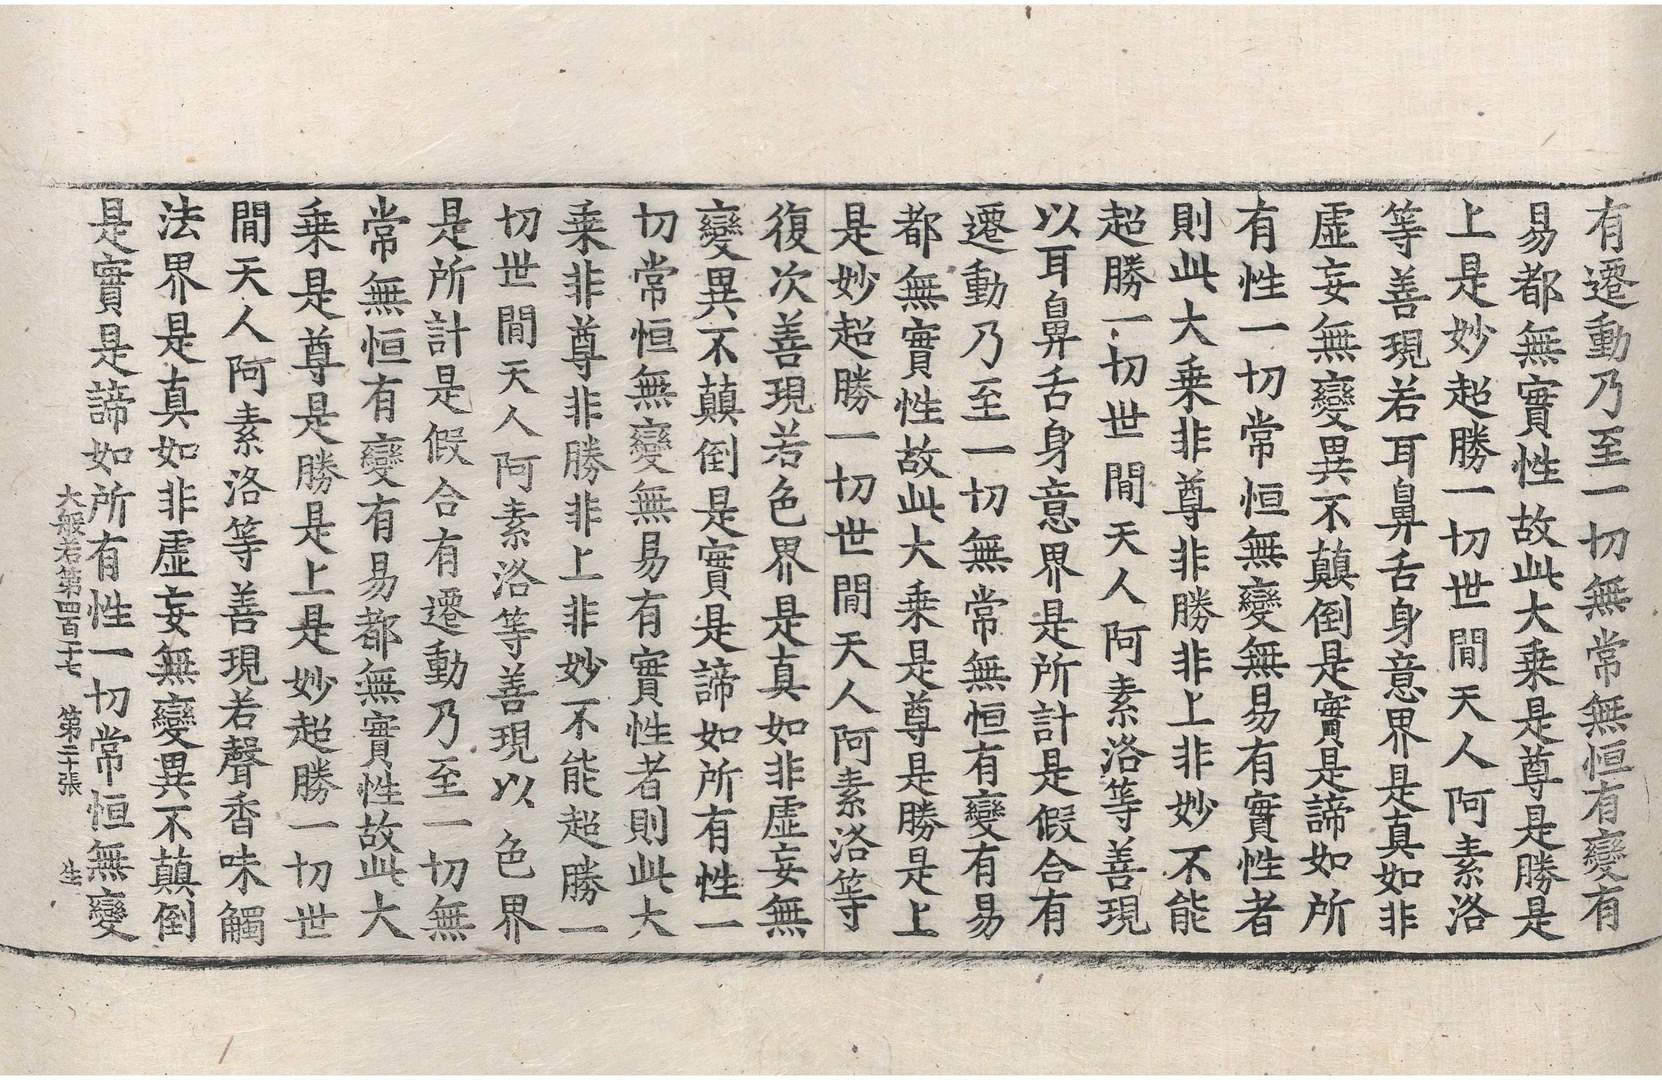 有遷動乃至一切無常無恒有變有
易都無實性故此大乗是尊是勝是
上是妙超勝一切世間天人阿素洛
等善現若耳鼻舌身意界是真如非
虛妄無變異不顛倒是實是諦如所
有性一切常恒無變無易有實性者
則此大乗非尊非勝非上非妙不能
超勝一切世間天人阿素洛等善現
以耳鼻舌身意界是所計是假合有
遷動乃至一切無常無恒有變有易
都無實性故此大乗是尊是勝是上
是妙超勝一切世間天人阿素洛等
復次善現若色界是真如非虛妄無
變異不顛倒是實是諦如所有性一
切常恒無變無易有實性者則此大
乗非尊非勝非上非妙不能超勝一
切世間天人阿素洛等善現以色界
是所計是假合有遷動乃至一切無
常無恒有變有易都無實性故此大
乗是尊是勝是上是妙超勝一切世
間天人阿素洛等善現若聲香味觸
法界是真如非虛妄無變異不顛倒
是實是諦如所有性一切常恒無變
大般若第四百十七 第二十張 生